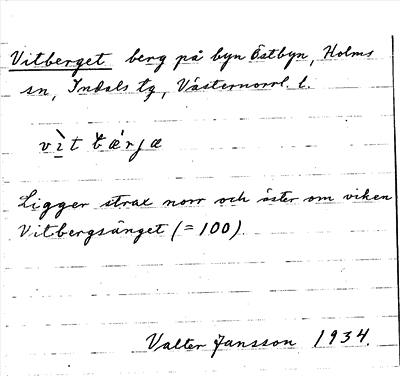 Vitberget berg på byn Östbyn, Holms
sn, Indals tg, Västernorrl. l.
vìt bǽrjæ
Ligger strax norr och öster om viken
Vitbergsänget (=100).
Valter Jansson 1934.